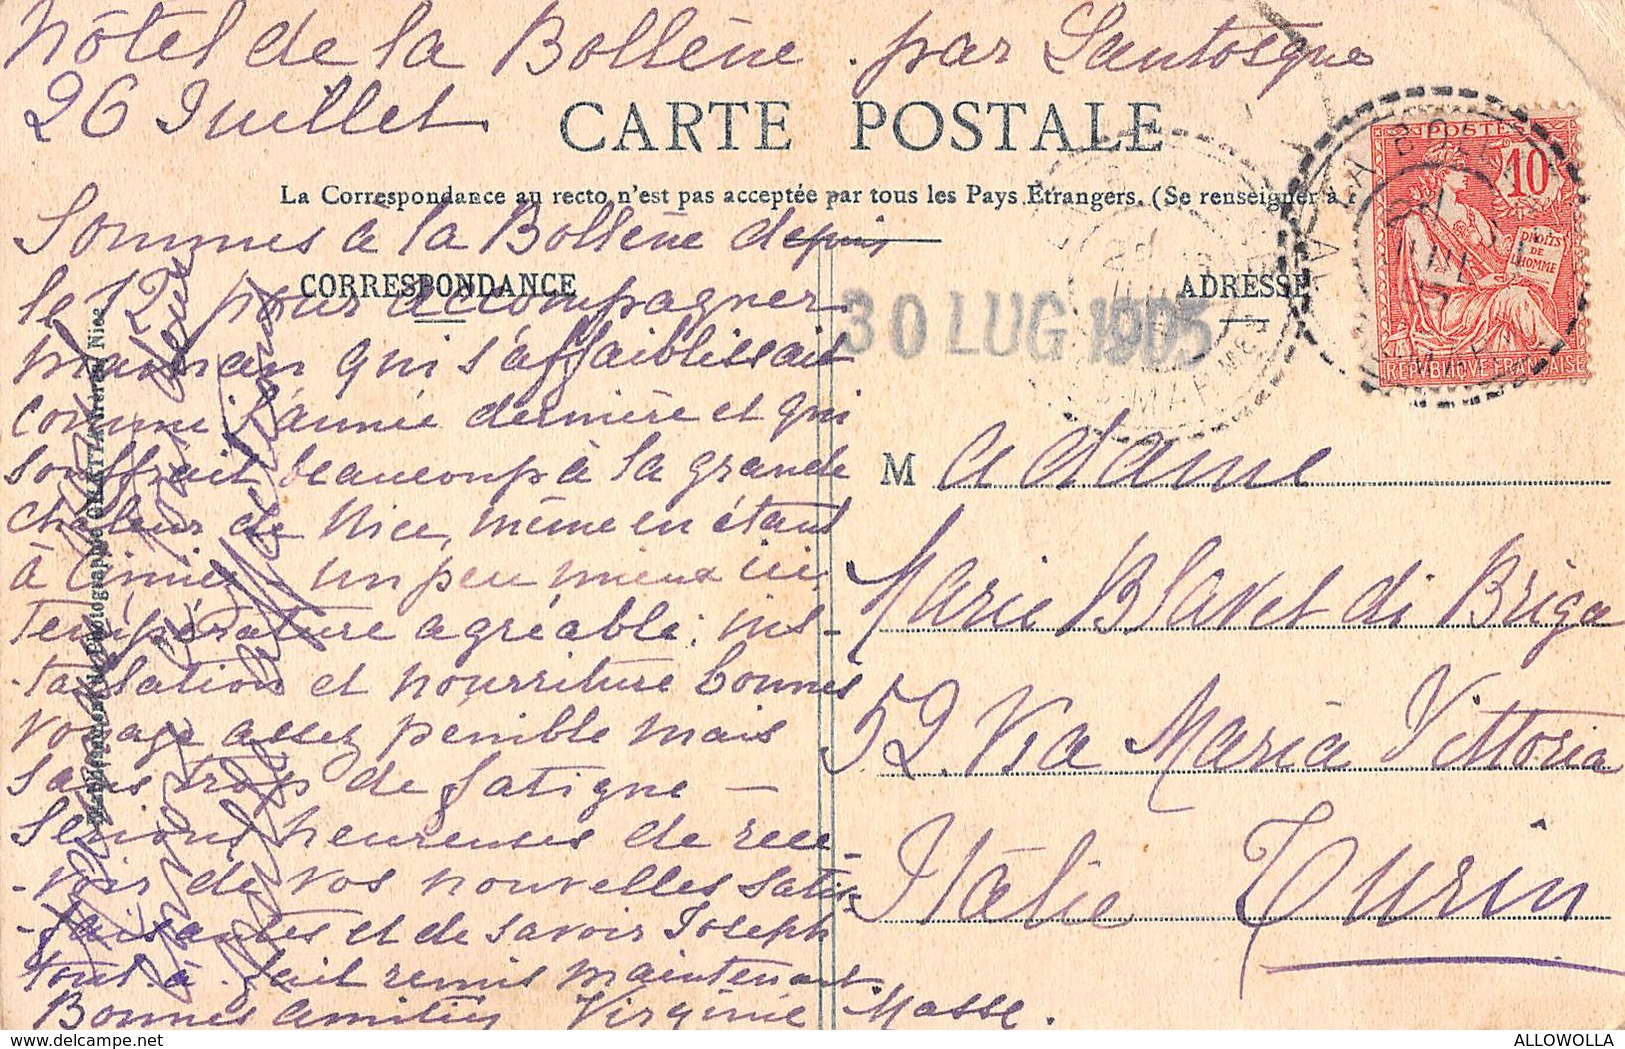 hôtel de la Bollène . par Lantosque
26 Juillet
CARTE POSTALE
La Correspondance au recto n'est pas acceptée par tous les Pays Étrangers. (Se renseigner à
Sommes à la Bollène depuis
CORRESPONDANCE
le 12 pour accompagner
maman qui s'affaiblissait
comme l'année dernière et qui
souffrait beaucoup à la grande
chaleur de Nice, même en étant
à Cimiez - un peu mieux ici,
Température agréable; ins-
-tallation et nourriture bonnes
Voyage assez pénible mais
sans trop de fatigue —
Serions heureuses de rece-
-voir de vos nouvelles satis-
-faisantes et de savoir Joseph
tout à fait remis maintenant.
Bonnes amitiés Virginie Masse.
ADRESSE
30 LUG 1905
POSTES
10
DROITS
DE
L'HOMME
REPUBLIQUE FRANÇAISE
Madame
Marie Blavet di Briga
52. Via Maria Vittoria
Italie Turin
ALLOWOLLA